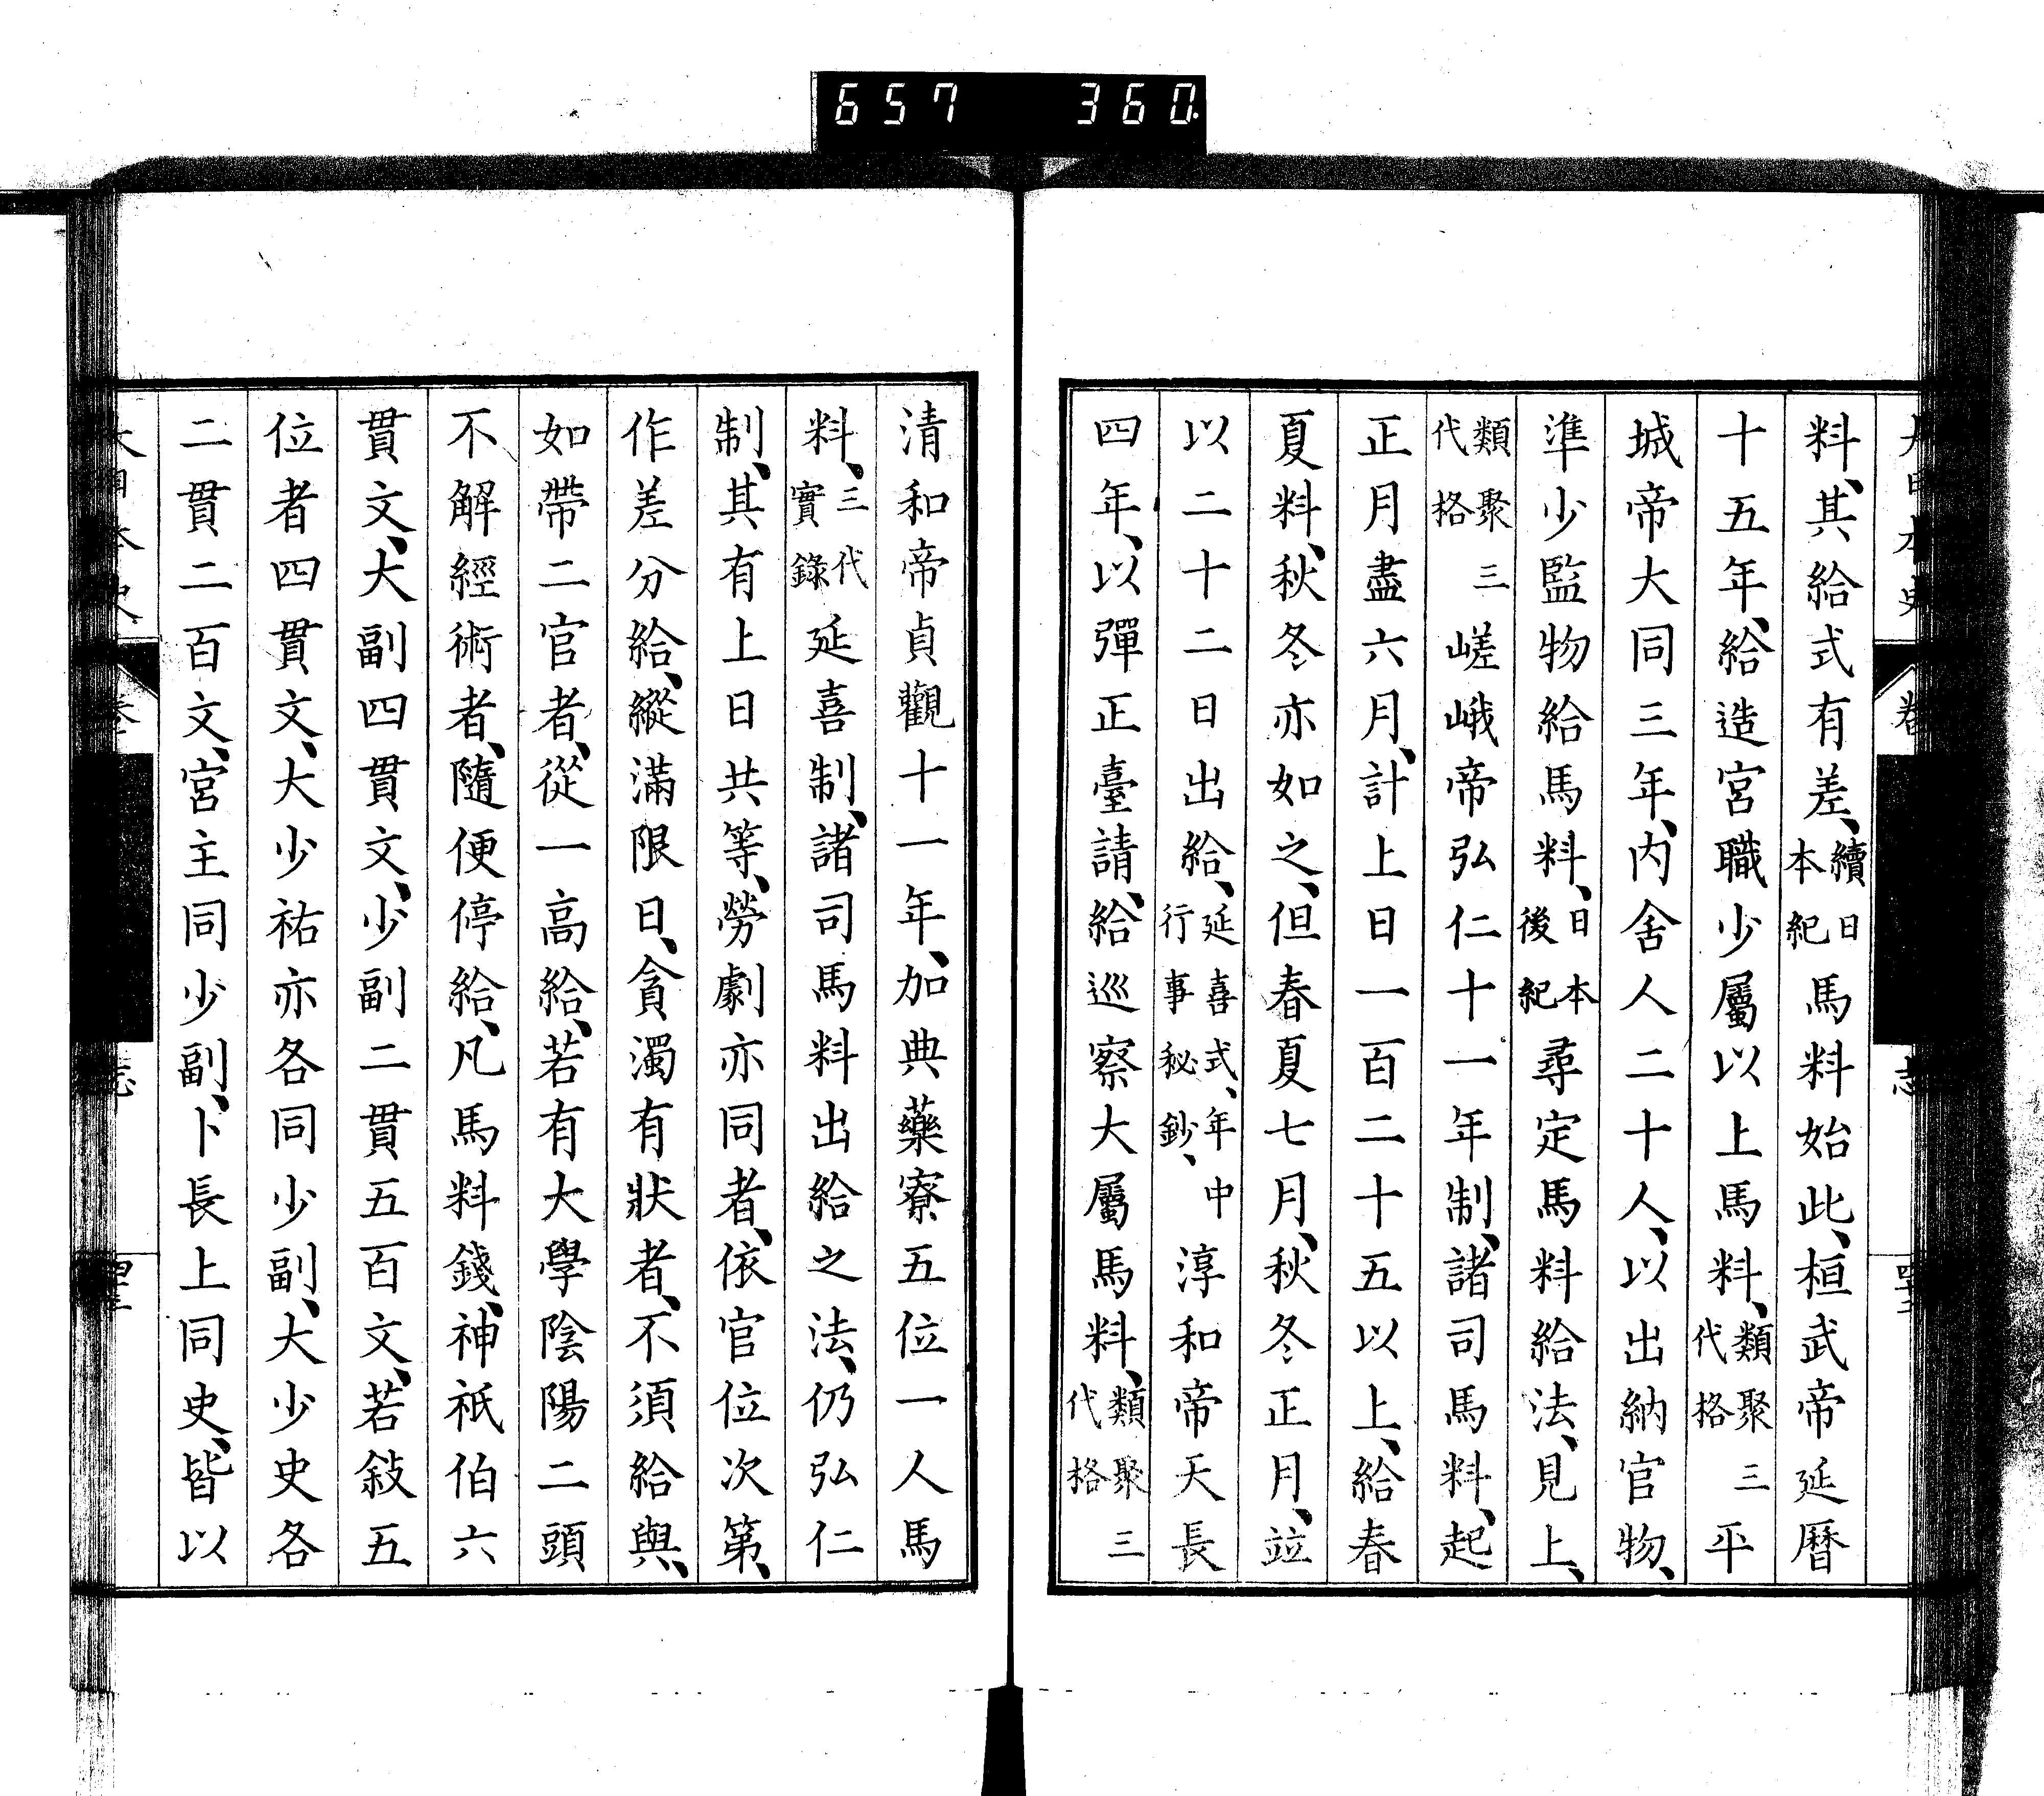 657 360
料、其給式有差、續日本紀馬料始此、桓武帝延曆
十五年、給造宮職少屬以上馬料、類聚三代格平
城帝大同三年、內舍人二十人、以出納官物、
準少監物給馬料、日本後紀尋定馬料給法、見上、
類聚三代格嵯峨帝弘仁十一年制、諸司馬料、起
正月盡六月、計上日一百二十五以上、給春
夏料、秋冬亦如之、但春夏七月、秋冬正月、竝
以二十二日出給、延喜式、年中行事秘鈔、淳和帝天長
四年、以彈正臺請、給巡察大屬馬料、類聚三代格
清和帝貞觀十一年、加典藥寮五位一人馬
料、三代實錄延喜制、諸司馬料出給之法、仍弘仁
制、其有上日共等、勞劇亦同者、依官位次第、
作差分給、縱滿限日、貪濁有狀者、不須給與、
如帶二官者、從一高給、若有大學陰陽二頭
不解經術者、隨便停給、凡馬料錢、神祇伯六
貫文、大副四貫文、少副二貫五百文、若敍五
位者四貫文、大少祐亦各同少副、大少史各
二貫二百文、宮主同少副、卜長上同史、皆以